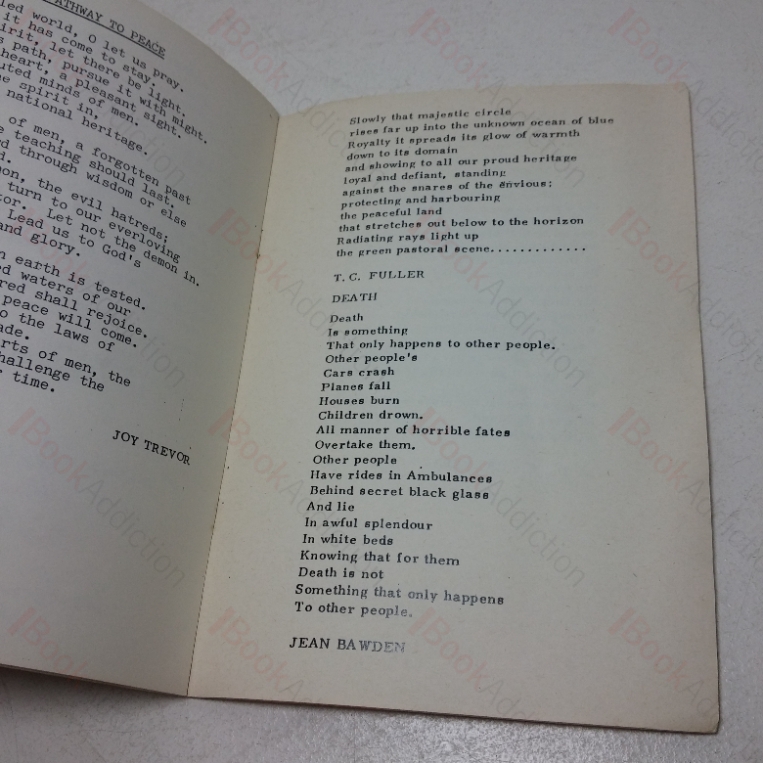 PATHWAY TO PEACE
led world, O let us pray.
it has come to stay.
irit, let there be light.
s path, pursue it with might.
heart, a pleasant sight.
uted minds of men.
e spirit in,
national heritage.
of men, a forgotten past
e teaching should last.
d through wisdom or else
d.
on, the evil hatreds;
turn to our everloving
tor. Let not the demon in.
Lead us to God's
and glory.
n earth is tested.
ed waters of our
red shall rejoice.
peace will come.
o the laws of
ade.
rts of men, the
hallenge the
r time.
JOY TREVOR
Slowly that majestic circle
rises far up into the unknown ocean of blue
Royalty it spreads its glow of warmth
down to its domain
and showing to all our proud heritage
loyal and defiant, standing
against the snares of the envious;
protecting and harbouring
the peaceful land
that stretches out below to the horizon
Radiating rays light up
the green pastoral scene.............
T. C. FULLER
DEATH
Death
Is something
That only happens to other people.
Other people's
Cars crash
Planes fall
Houses burn
Children drown.
All manner of horrible fates
Overtake them.
Other people
Have rides in Ambulances
Behind secret black glass
And lie
In awful splendour
In white beds
Knowing that for them
Death is not
Something that only happens
To other people.
JEAN BAWDEN